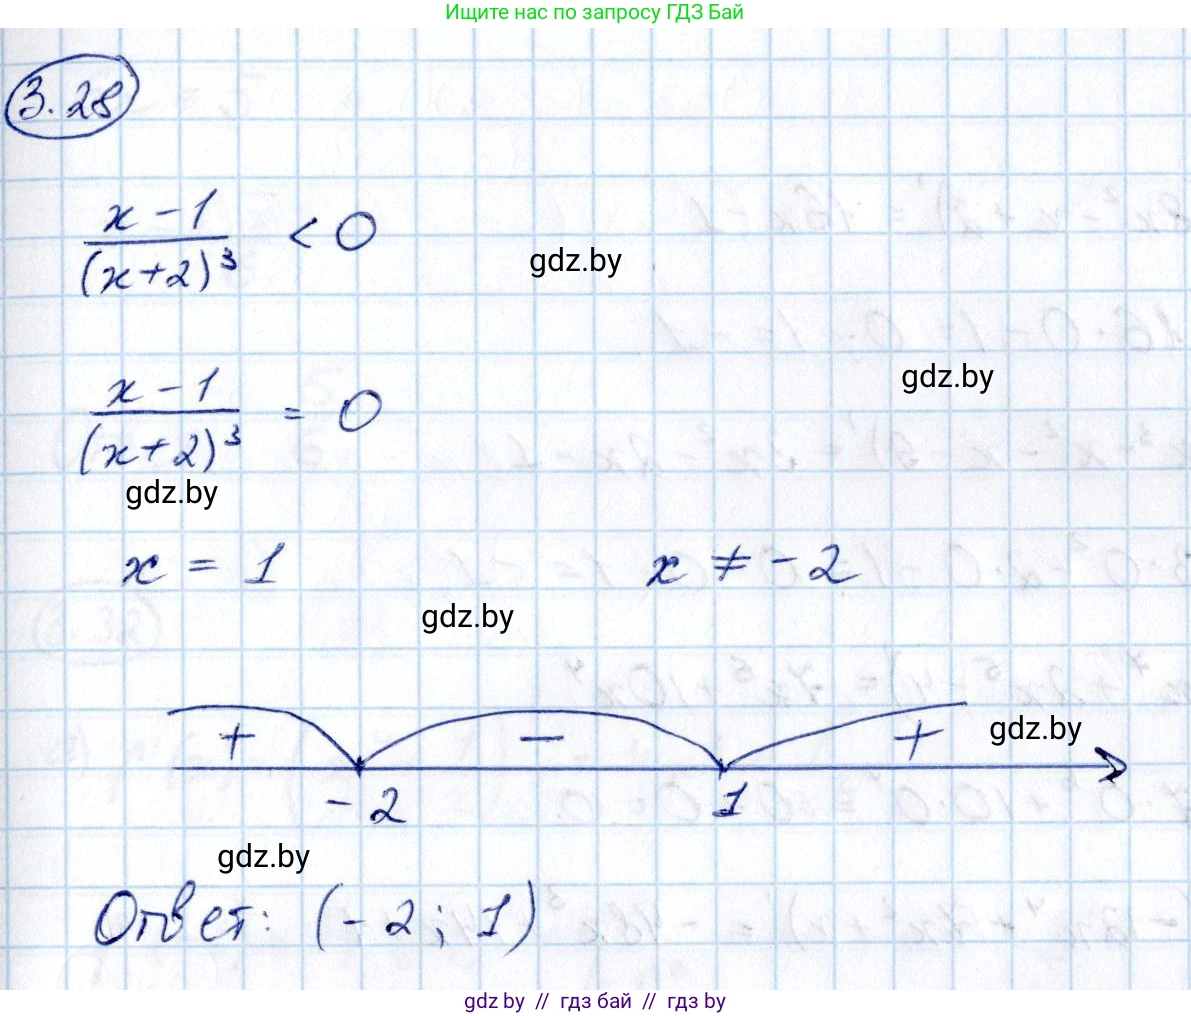 Ищите нас по запросу ГДЗ Бай
3.28
(x - 1)/(x+2)³ < 0
gdz.by
gdz.by
(x - 1)/(x+2)³ = 0
gdz.by
x = 1 x ≠ -2
gdz.by
+ − + gdz.by
-2 1
gdz.by
Ответ: (-2; 1)
gdz.by // гдз бай // гдз by